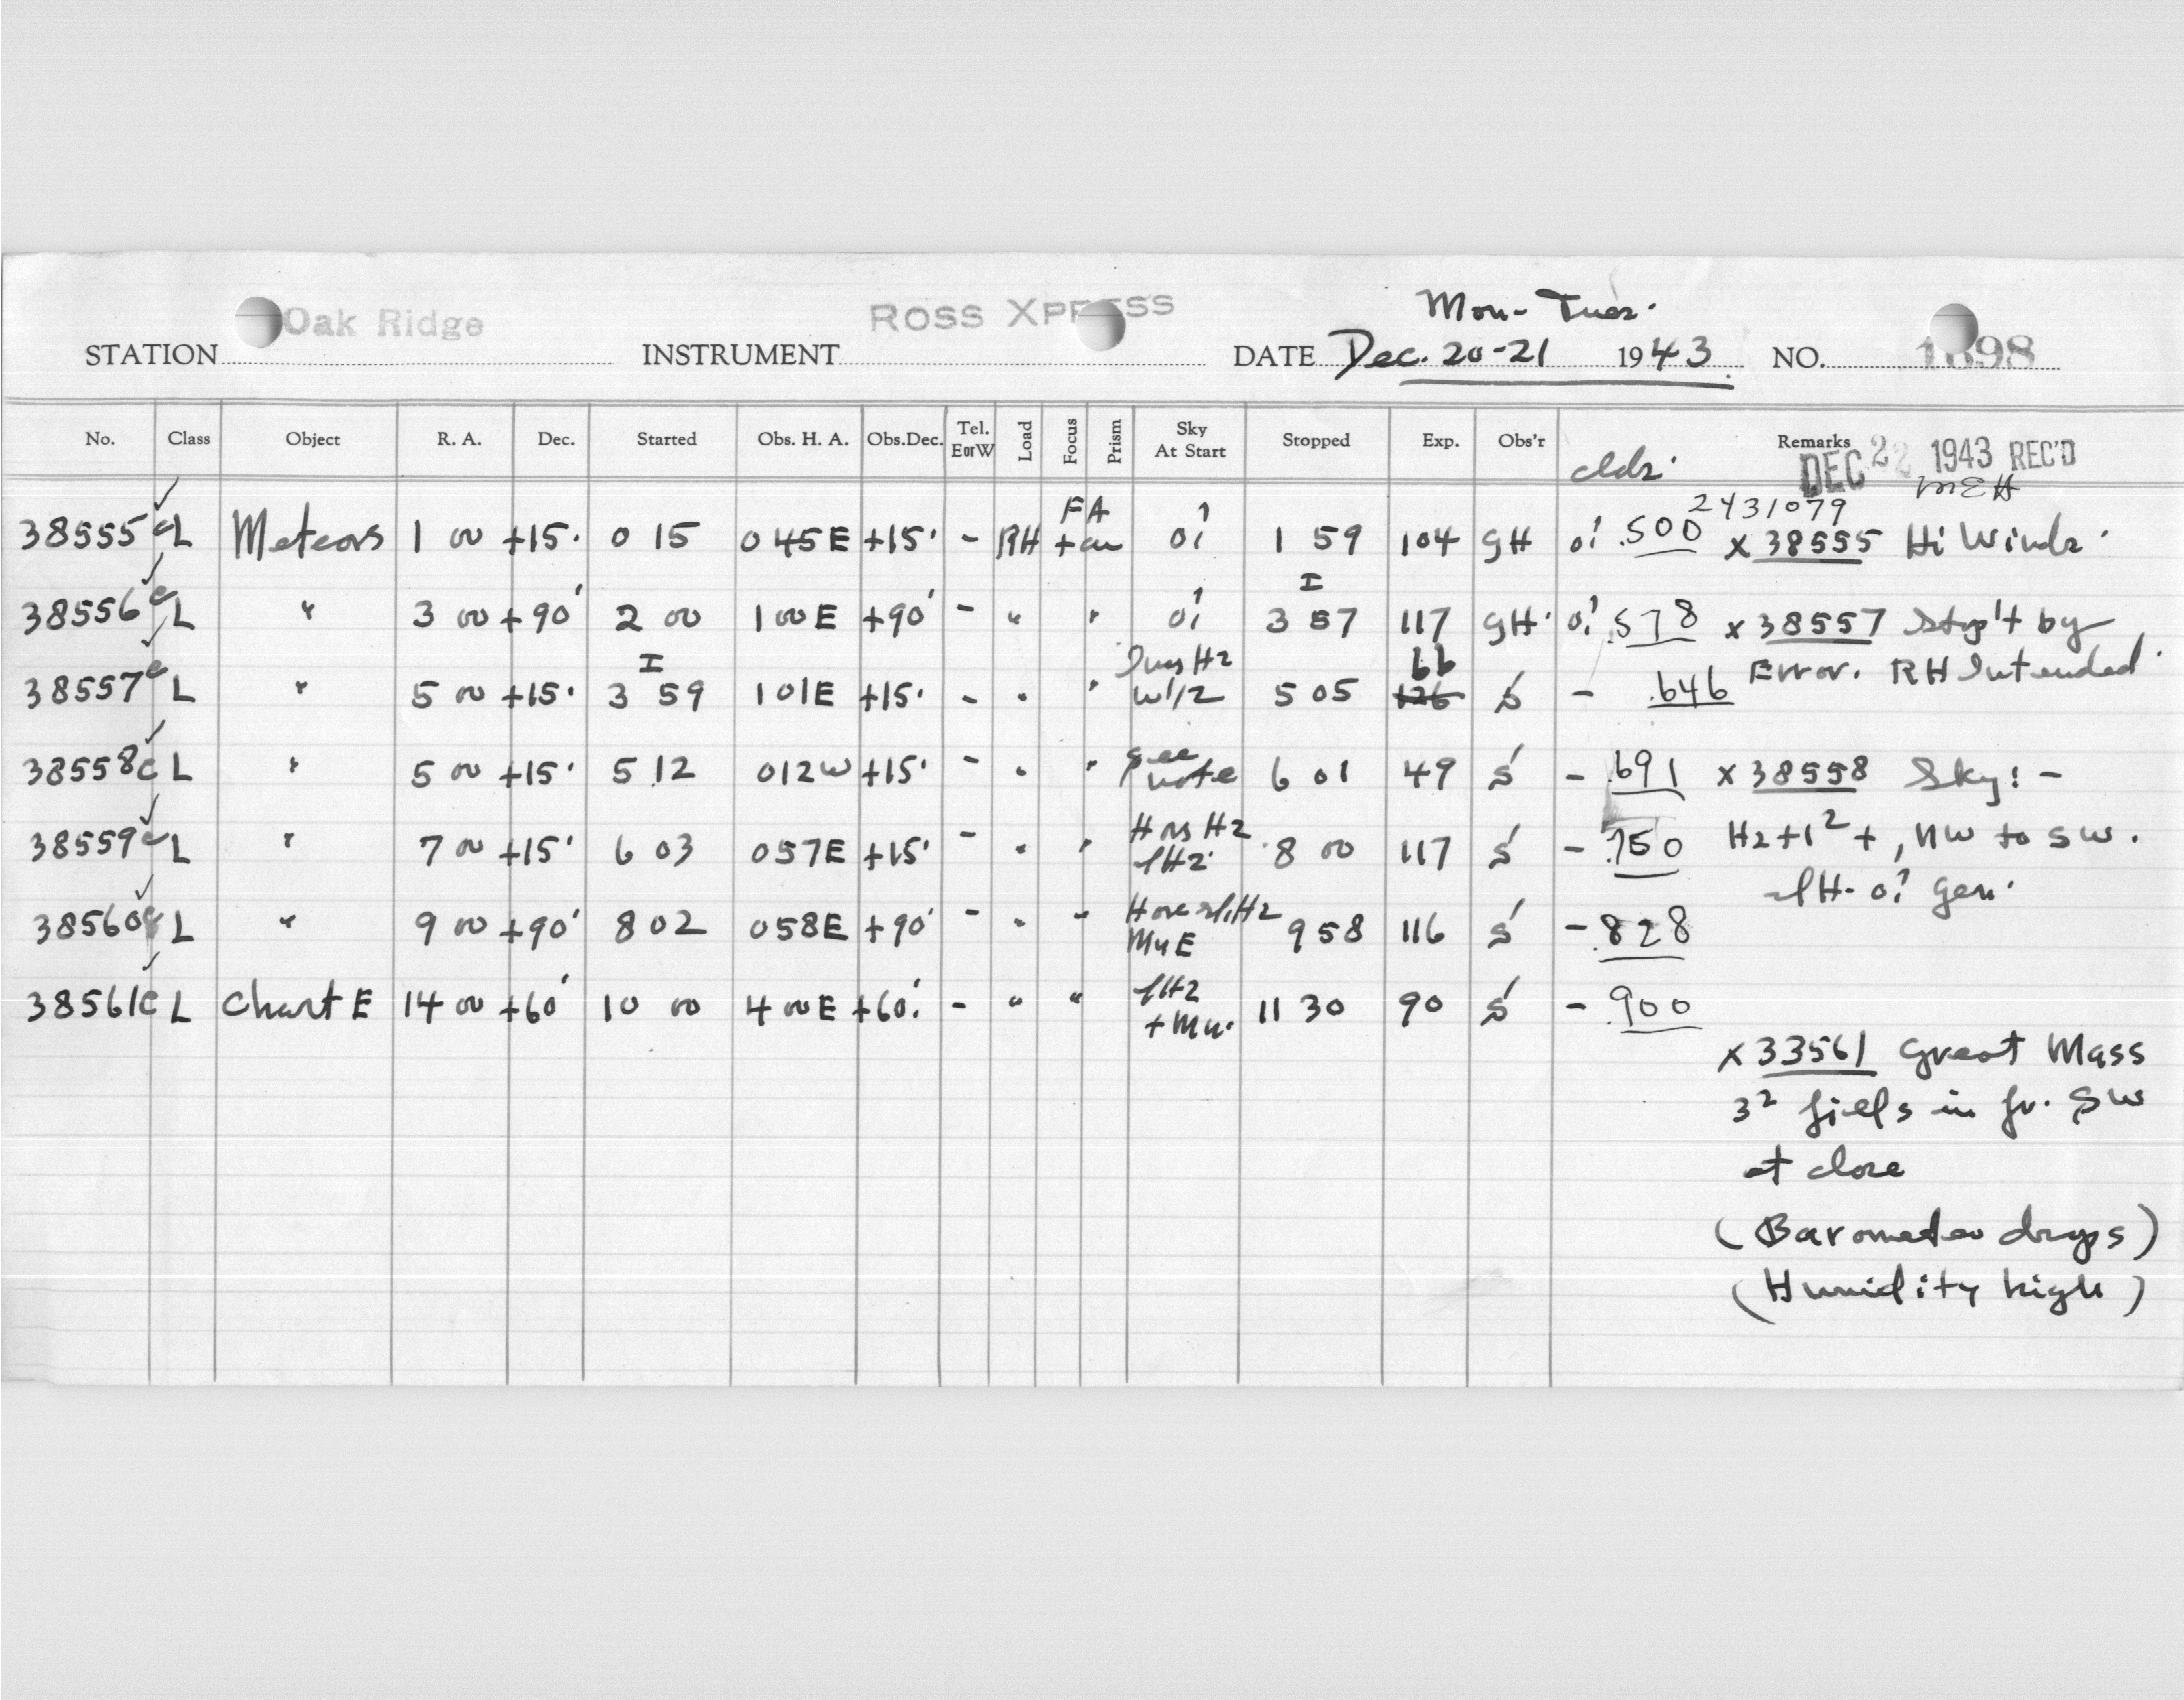 Mon-Tues.
STATION Oak Ridge INSTRUMENT ROSS XPRESS DATE Dec. 20-21 1943 NO. 1898
No. Class Object R. A. Dec. Started Obs. H. A. Obs.Dec. Tel. EorW Load Focus Prism Sky At Start Stopped Exp. Obs'r Remarks
DEC 22 1943 REC'D
MEH
2431079
38555 c L Meteors 1 00 +15° 0 15 0 45 E +15° - RH FA 0! 1 59 104 GH 0! .500 x 38555 Hi Winds.
38556 c L " 3 00 +90° 2 00 1 00 E +90° - " " 0! I 3 57 117 GH 0! .578 x 38557 Stop't by
38557 c L " 5 00 +15° I 3 59 1 01 E +15° - " " 5 05 66 126 S - .646 Error. RH Intended.
38558 c L " 5 00 +15° 5 12 0 12 W +15° - " " See note 6 01 49 S - .691 x 38558 Sky: -
38559 c L " 7 00 +15° 6 03 0 57 E +15° - " " 8 00 117 S - .750 Hz+1²+, NW to SW.
0! Gen.
38560 c L " 9 00 +90° 8 02 0 58 E +90° - " " 9 58 116 S - .828
38561 c L Chart E 14 00 +60° 10 00 4 00 E +60° - " " 11 30 90 S - .900
x 33561 Great Mass
3² fields in fr. SW
at close
(Barometer drops)
(Humidity high)